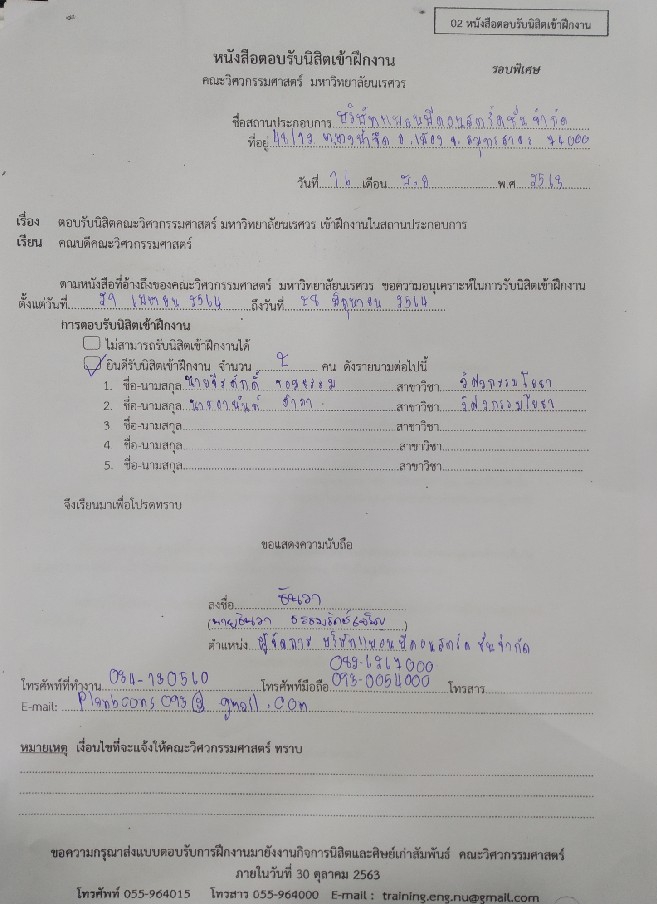 02 หนังสือตอบรับนิสิตเข้าฝึกงาน
หนังสือตอบรับนิสิตเข้าฝึกงาน
รอบพิเศษ
คณะวิศวกรรมศาสตร์ มหาวิทยาลัยนเรศวร
ชื่อสถานประกอบการ บริษัทแพลนบีคอนสตรัคชั่นจำกัด
ที่อยู่ ต.บางน้ำจืด อ.เมือง จ.สมุทรสาคร 74000
วันที่ 16 เดือน ต.ค พ.ศ 2563
เรื่อง ตอบรับนิสิตคณะวิศวกรรมศาสตร์ มหาวิทยาลัยนเรศวร เข้าฝึกงานในสถานประกอบการ
เรียน คณบดีคณะวิศวกรรมศาสตร์
ตามหนังสือที่อ้างถึงของคณะวิศวกรรมศาสตร์ มหาวิทยาลัยนเรศวร ขอความอนุเคราะห์ในการรับนิสิตเข้าฝึกงาน
ตั้งแต่วันที่ 29 เมษายน 2564 ถึงวันที่ 28 มิถุนายน 2564
การตอบรับนิสิตเข้าฝึกงาน
ไม่สามารถรับนิสิตเข้าฝึกงานได้
ยินดีรับนิสิตเข้าฝึกงาน จำนวน 2 คน ดังรายนามต่อไปนี้
1. ชื่อ-นามสกุล นายจีรศักดิ์ สาขาวิชา วิศวกรรมโยธา
2. ชื่อ-นามสกุล นายอานันท์ สาขาวิชา วิศวกรรมโยธา
3 ชื่อ-นามสกุล สาขาวิชา
4 ชื่อ-นามสกุล สาขาวิชา
5. ชื่อ-นามสกุล สาขาวิชา
จึงเรียนมาเพื่อโปรดทราบ
ขอแสดงความนับถือ
ลงชื่อ ธันวา
(นายธันวา )
ตำแหน่ง ผู้จัดการ บริษัทแพลนบีคอนสตรัคชั่นจำกัด
โทรศัพท์ที่ทำงาน โทรศัพท์มือถือ 093-0054000 โทรสาร
E-mail: planbcons093@gmail.com
หมายเหตุ เงื่อนไขที่จะแจ้งให้คณะวิศวกรรมศาสตร์ ทราบ
ขอความกรุณาส่งแบบตอบรับการฝึกงานมายังงานกิจการนิสิตและศิษย์เก่าสัมพันธ์ คณะวิศวกรรมศาสตร์
ภายในวันที่ 30 ตุลาคม 2563
โทรศัพท์ 055-964015 โทรสาร 055-964000 E-mail : training.eng.nu@gmail.com